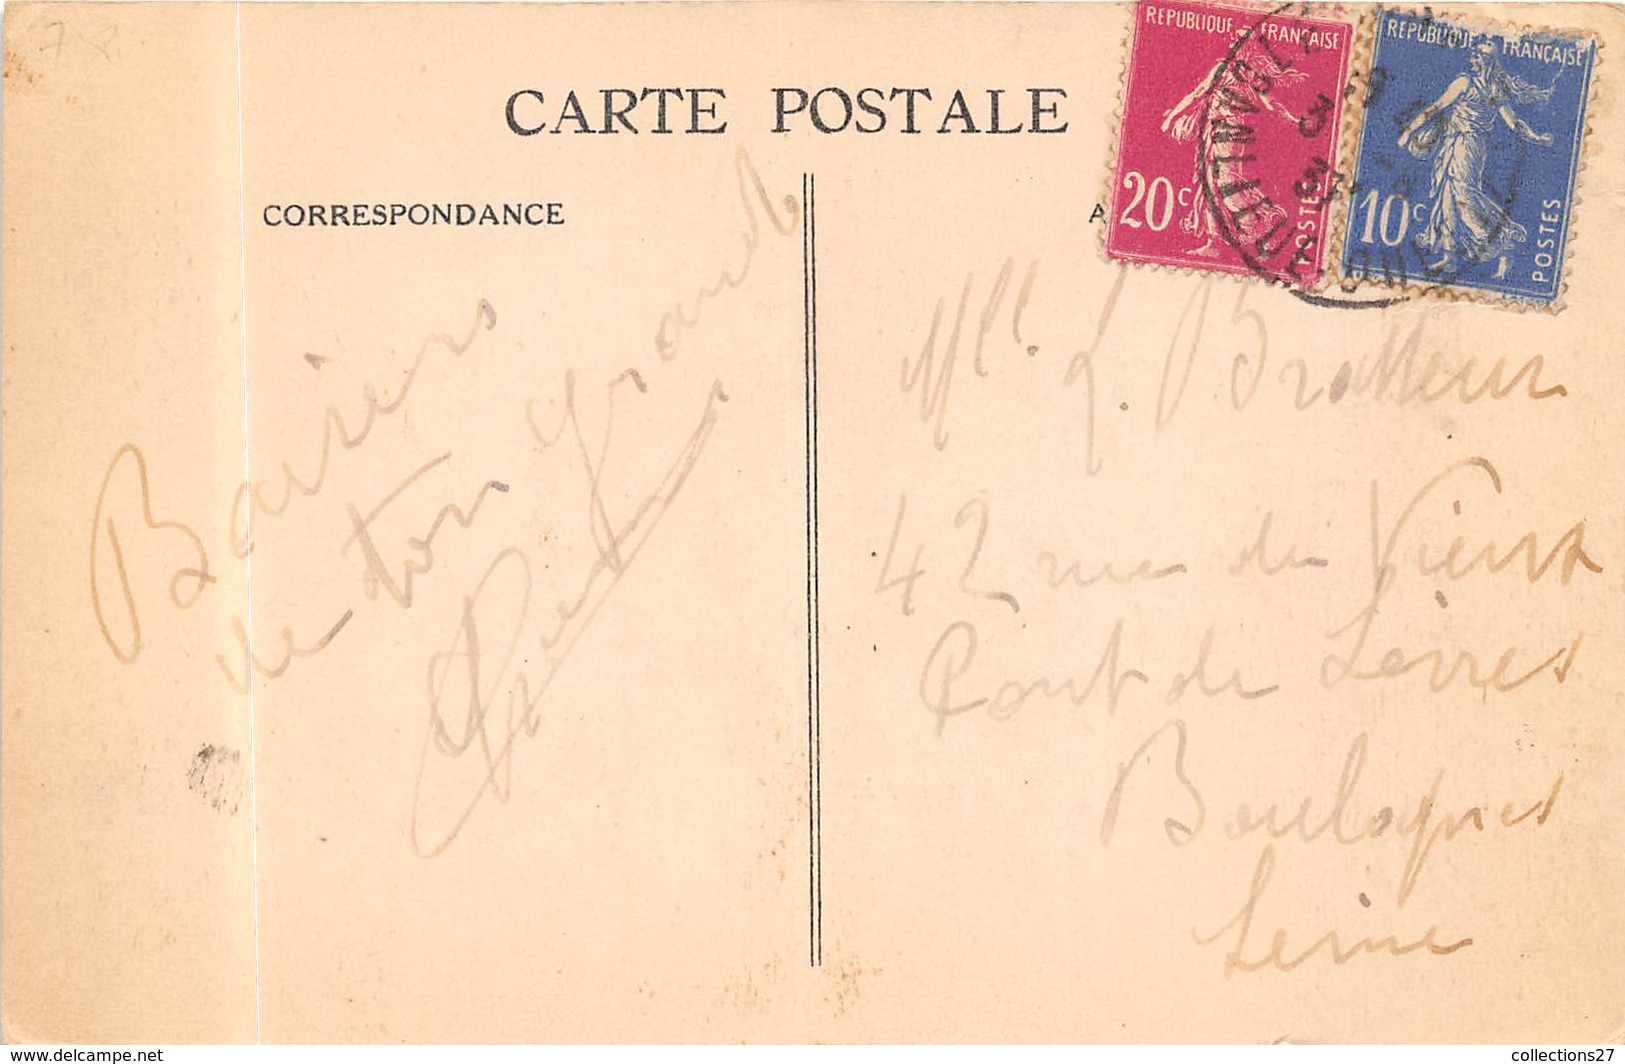 78
CARTE POSTALE
CORRESPONDANCE
A
REPUBLIQUE FRANÇAISE
20c
POSTES
REPUBLIQUE FRANÇAISE
10c
POSTES
Baisers
de ton grand
Mlle. L. Bratteur
42 rue du Vieux
Pont de Sèvres
Boulogne s
Seine
www.delcampe.net
collections27